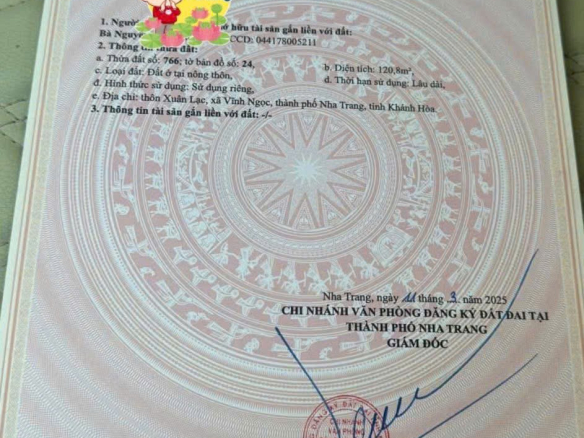 1. Người ở hữu tài sản gắn liền với đất:
Bà Nguy CCD: 044178005211
2. Thông tin thửa đất:
a. Thửa đất số: 766; tờ bản đồ số: 24, b. Diện tích: 120,8m²,
c. Loại đất: Đất ở tại nông thôn, d. Thời hạn sử dụng: Lâu dài,
đ. Hình thức sử dụng: Sử dụng riêng,
e. Địa chỉ: thôn Xuân Lạc, xã Vĩnh Ngọc, thành phố Nha Trang, tỉnh Khánh Hòa.
3. Thông tin tài sản gắn liền với đất: -/-
Nha Trang, ngày 11 tháng 3 năm 2025
CHI NHÁNH VĂN PHÒNG ĐĂNG KÝ ĐẤT ĐAI TẠI
THÀNH PHỐ NHA TRANG
GIÁM ĐỐC
CHI NHÁNH
VĂN PHÒNG